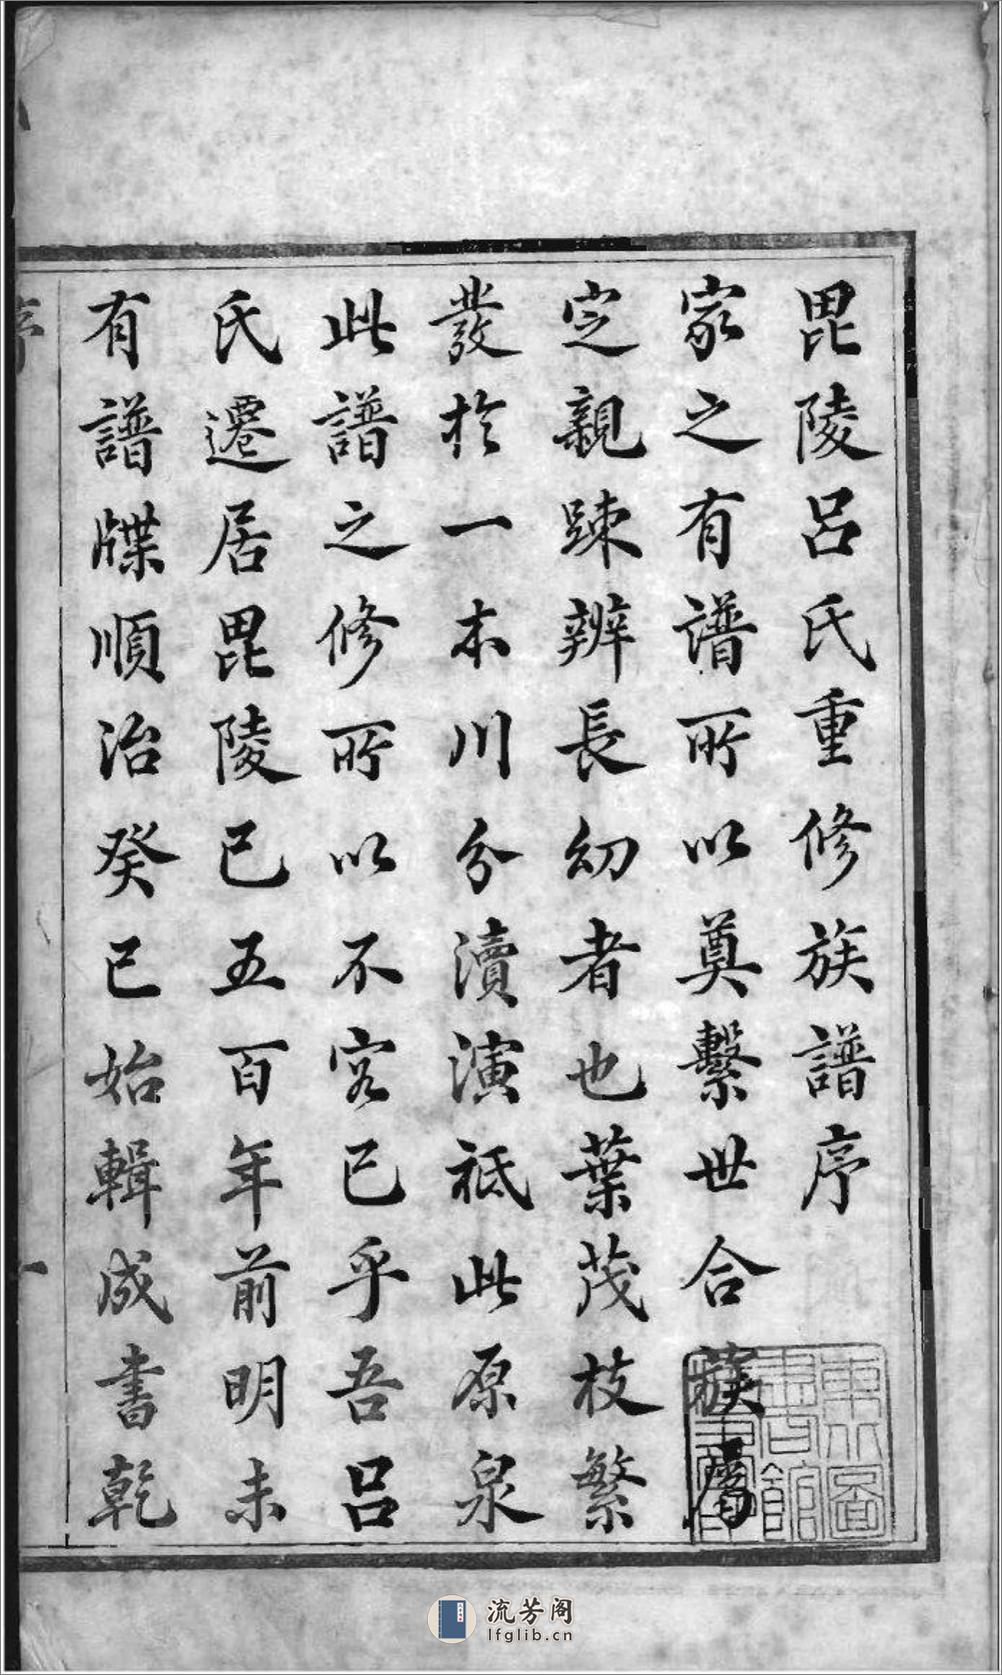 毘陵呂氏重修族譜序
家之有譜所以奠繫世合族屬
定親疎辨長幼者也葉茂枝繁
發於一本川分瀆演祗此原泉
此譜之修所以不容已乎吾呂
氏遷居毘陵已五百年前明未
有譜牒順治癸巳始輯成書乾
序
一
流芳阁
lfglib.cn